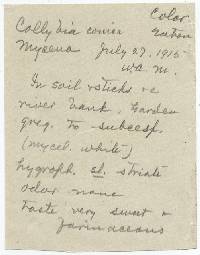 Color
Collybia conica
Mycena July 27, 1915
In soil & sticks
river bank Garden
greg. to subcesp.
(mycel. white)
hygroph. sl. striate
odor none
taste very sweet &
farinaceous